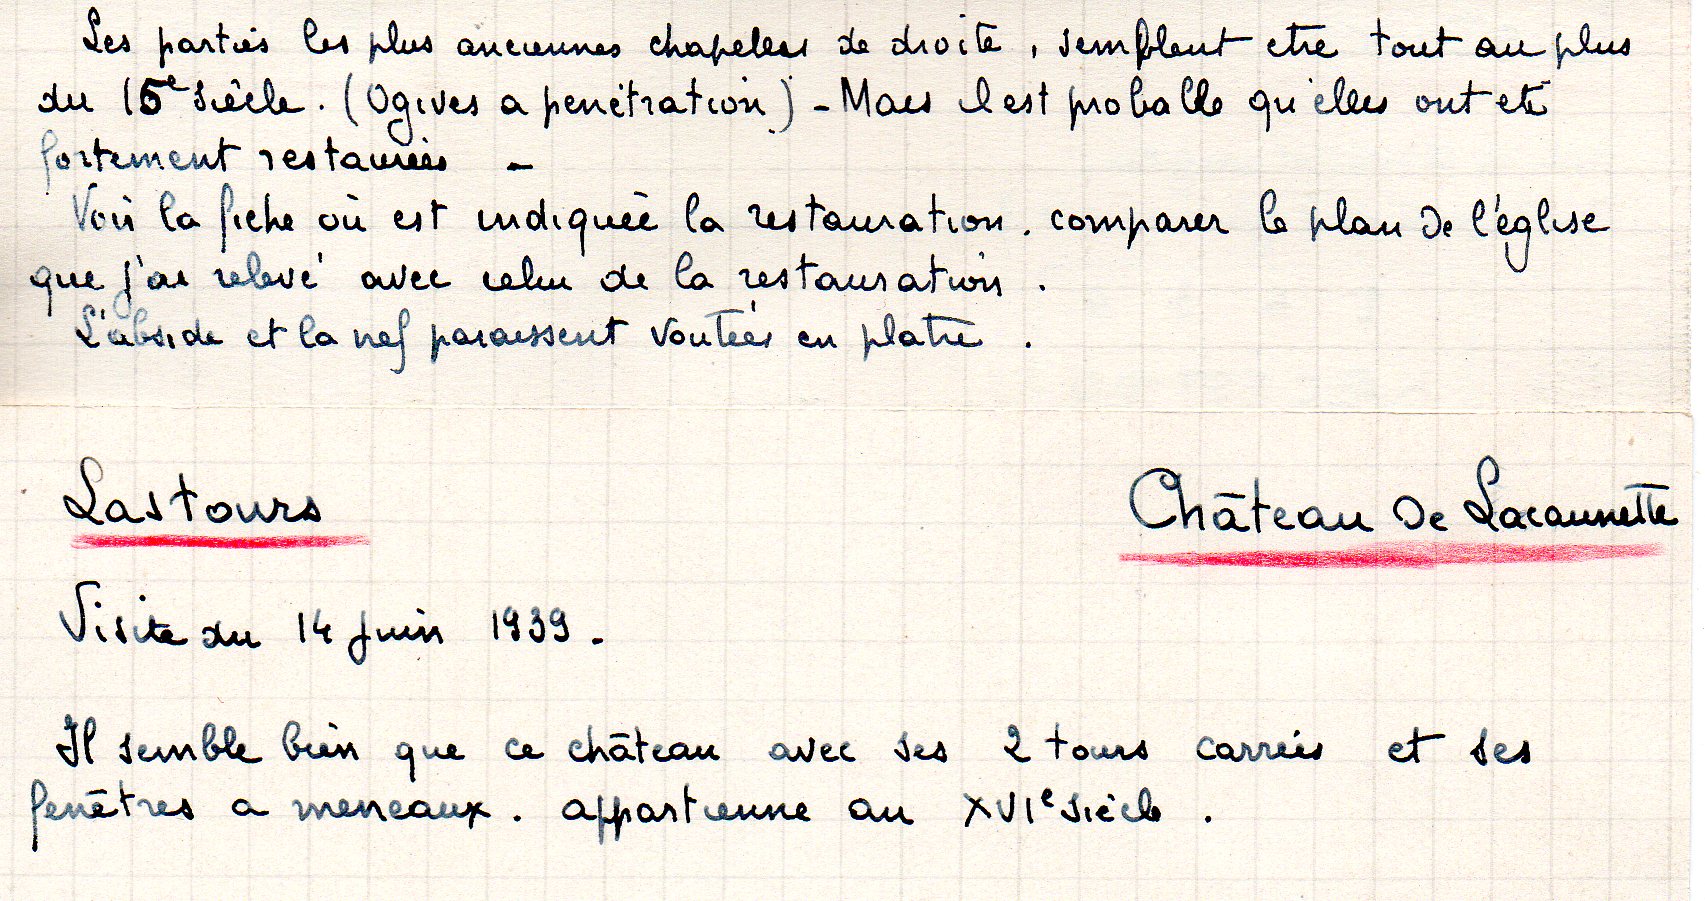 Les parties les plus anciennes chapelles de droite, semblent etre tout au plus
du 15e siècle. (Ogives a penétration) - Mais il est probable qu'elles ont eté
fortement restaurées -
Voir la fiche où est indiquée la restauration. comparer le plan de l'église
que j'ai relevé avec celui de la restauration.
L'abside et la nef paraissent voutées en platre.
Lastours
Château de Lacaunette
Visite du 14 juin 1939.
Il semble bien que ce château avec ses 2 tours carrées et ses
fenêtres a meneaux. appartienne au XVIe siècle.